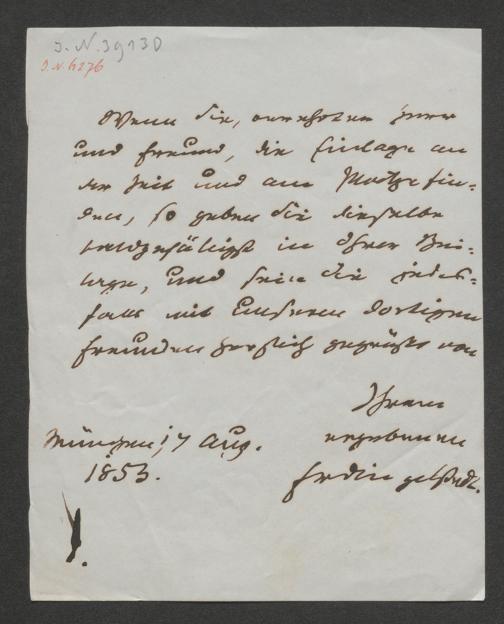 J.N. 39130
J.N. 6276
Wenn Sie, verehrter Herr
und Freund, die Einlage an
der Zeit und am Platze fin-
den, so geben Sie dieselbe
in Ihrer Bei-
lage, und seien Sie jeden-
falls mit Unseren dortigen
Freunden herzlich gegrüßt von
Ihrem
ergebenen
München 17 Aug.
1853.